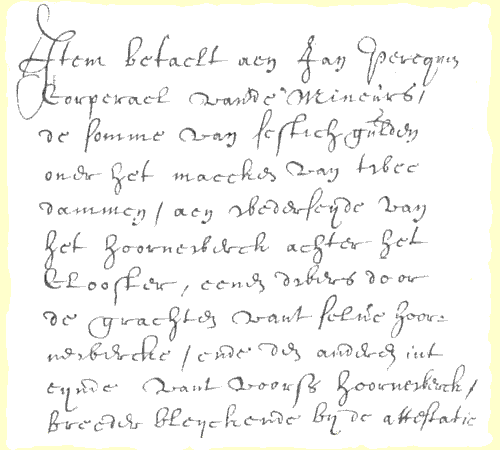 Item betaelt aen Jan Perequin
Corperael vande Mineurs /
de somme van sestich gulden
over het maecken van twee
dammen / aen wederseyde van
het hoornewerck achter het
Clooster, eenen dwers door
de grachten vant selve hoor-
newercke / ende den anderen int
eynde vant voorss hoornewerck /
breeder blyckende by de attestatie